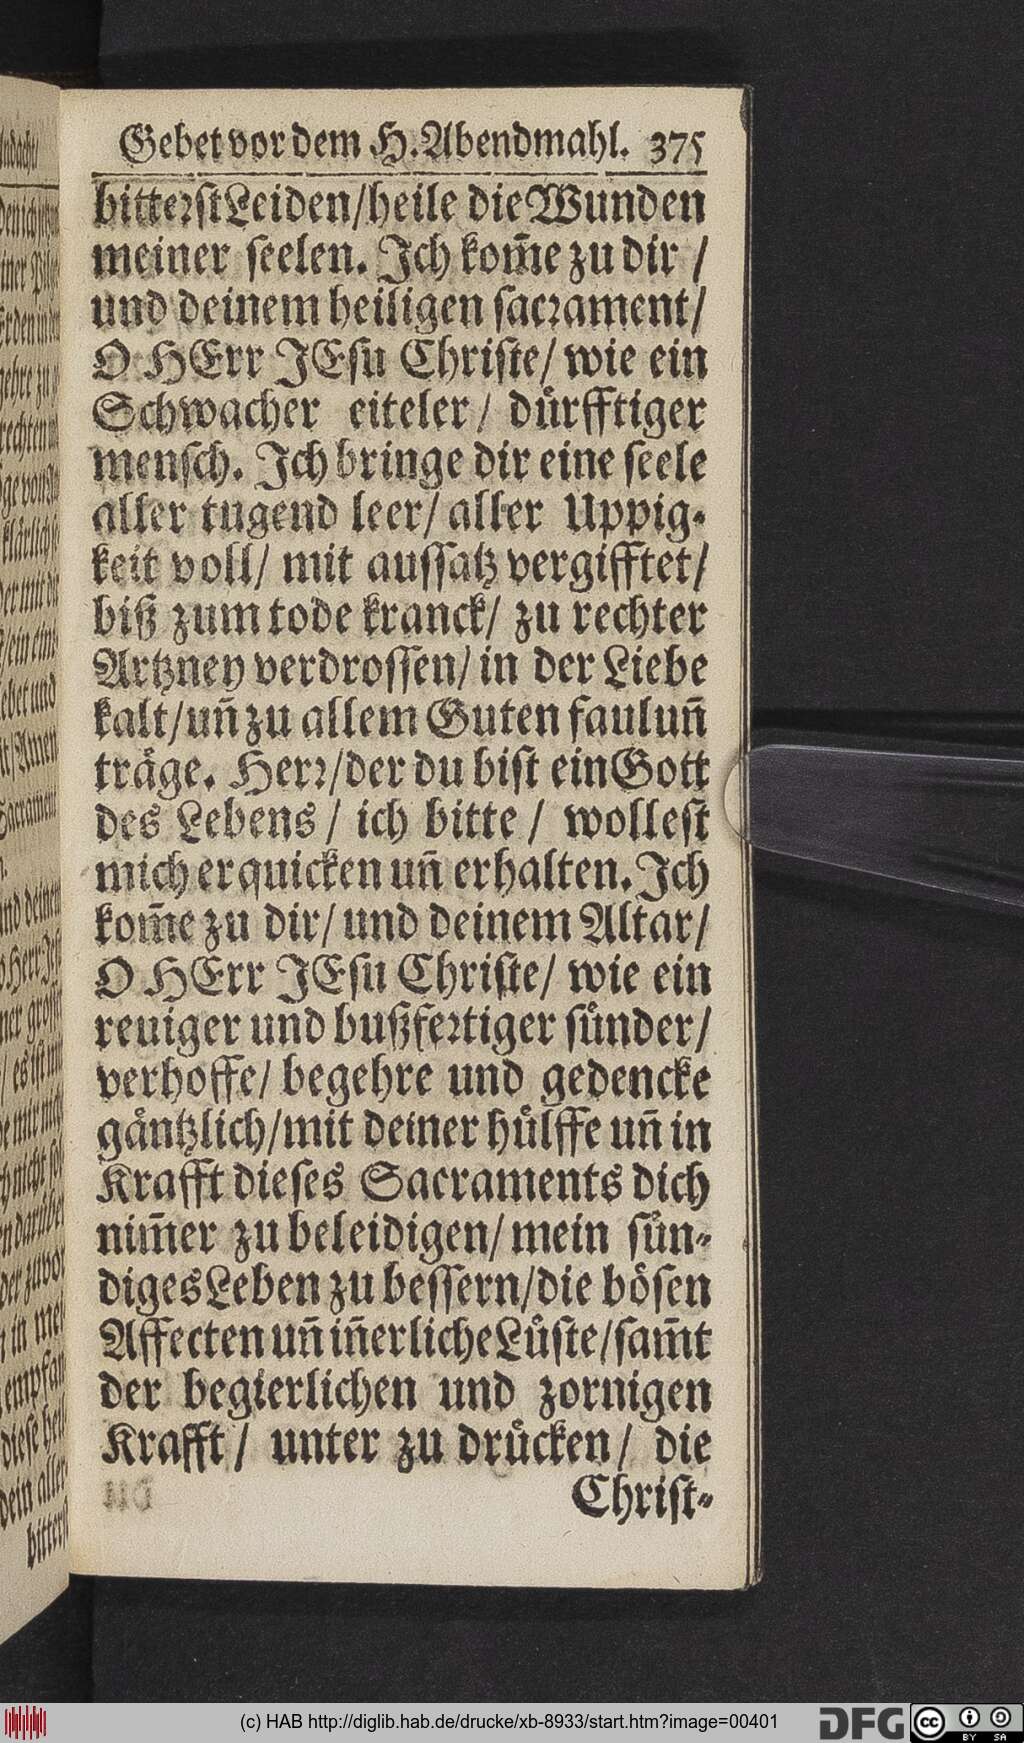 Gebet vor dem H. Abendmahl. 375
bitterst Leiden/heile die Wunden
meiner seelen. Ich kom̄e zu dir /
und deinem heiligen sacrament/
O HErr JEsu Christe/ wie ein
Schwacher eiteler / dürfftiger
mensch. Ich bringe dir eine seele
aller tugend leer/ aller Uppig-
keit voll/ mit aussatz vergifftet/
biß zum tode kranck/ zu rechter
Artzney verdrossen/ in der Liebe
kalt/ uñ zu allem Guten faul uñ
träge. Herr/der du bist ein Gott
des Lebens / ich bitte / wollest
mich erquicken uñ erhalten. Ich
kom̄e zu dir/ und deinem Altar/
O HErr JEsu Christe/ wie ein
reuiger und bußfertiger sünder/
verhoffe/ begehre und gedencke
gäntzlich/mit deiner hülffe uñ in
Krafft dieses Sacraments dich
nim̄er zu beleidigen/ mein sün-
diges Leben zu bessern/die bösen
Affecten uñ iñerliche Lüste/sam̄t
der begierlichen und zornigen
Krafft / unter zu drücken/ die
Christ-
(c) HAB http://diglib.hab.de/drucke/xb-8933/start.htm?image=00401
DFG
cc
BY SA